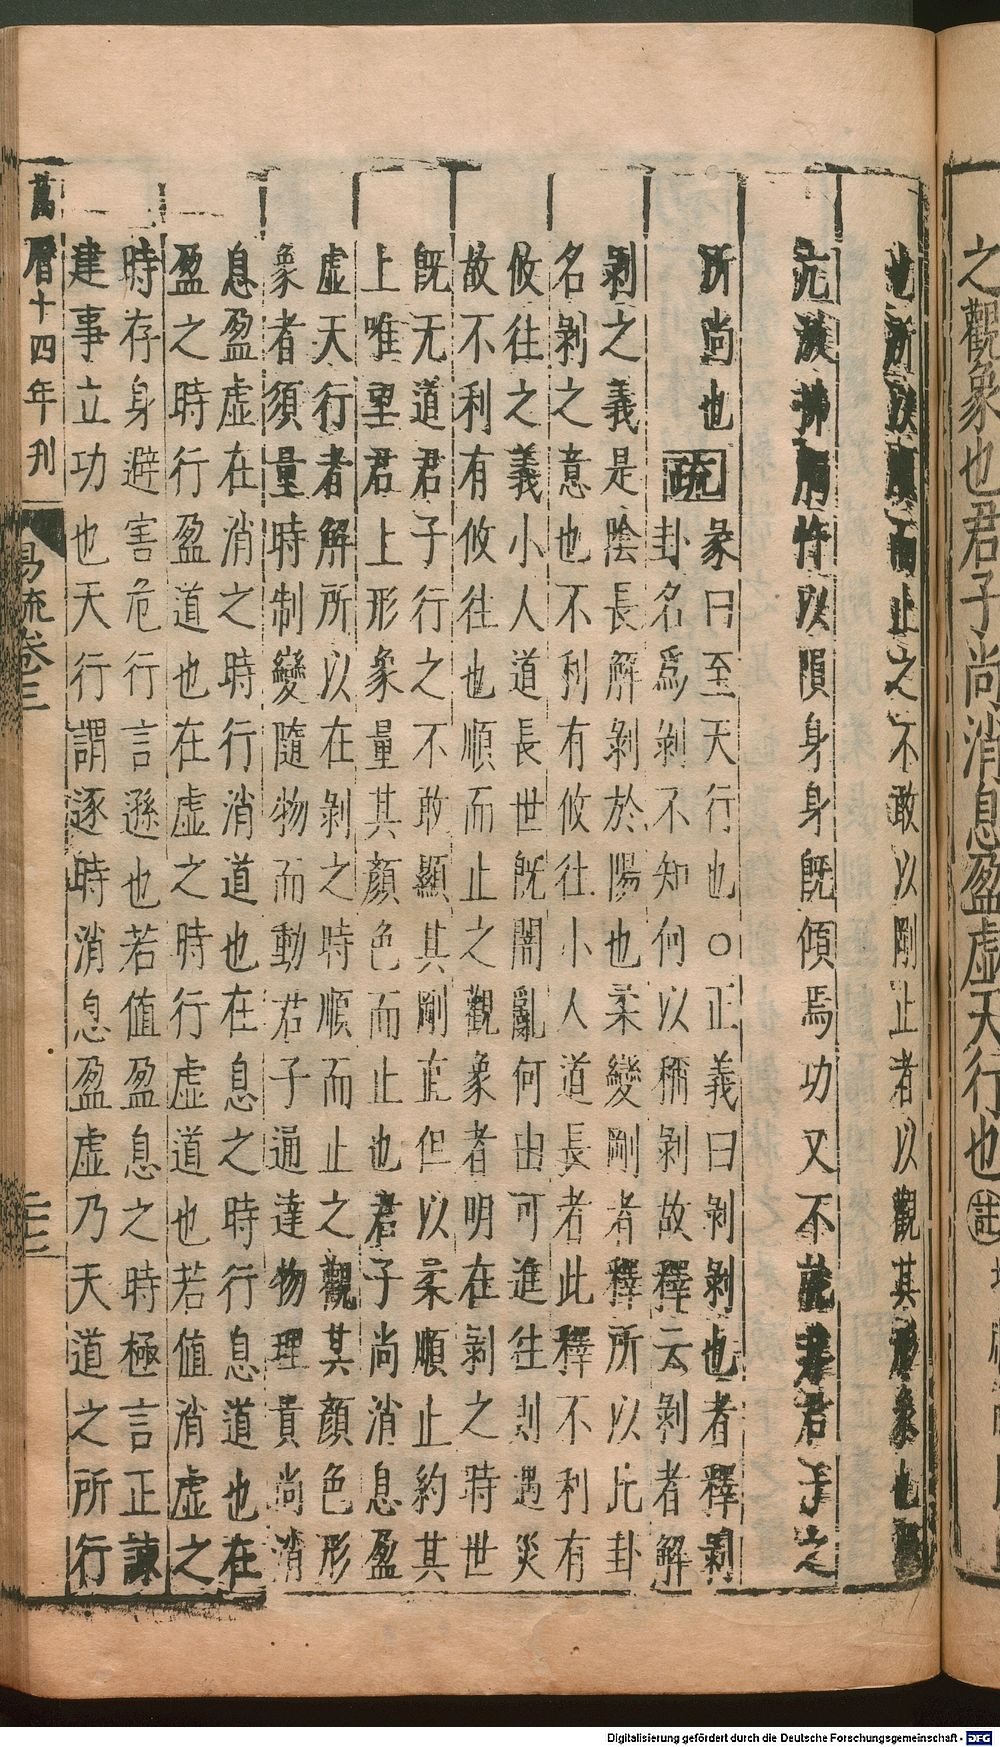 之觀象也君子尚消息盈虛天行也註
也所以順而止之不敢以剛止者以觀其形象也
亢激拂觸忤以隕身身既傾焉功又不就非君子之
所尚也疏彖曰至天行也○正義曰剝剝也者釋剝
卦名爲剝不知何以稱剝故釋云剝者解
剝之義是陰長解剝於陽也柔變剛者釋所以比卦
名剝之意也不利有攸往小人道長者此釋不利有
攸往之義小人道長世既闇亂何由可進往則遇災
故不利有攸往也順而止之觀象者明在剝之時世
既无道君子行之不敢顯其剛直但以柔順止約其
上唯望君上形象量其顏色而止也君子尚消息盈
虛天行者解所以在剝之時順而止之觀其顏色形
象者須量時制變隨物而動君子通達物理貴尚消
息盈虛在消之時行消道也在息之時行息道也在
盈之時行盈道也在虛之時行虛道也若值消虛之
時存身避害危行言遜也若值盈息之時極言正諫
建事立功也天行謂逐時消息盈虛乃天道之所行
萬曆十四年刊
易疏卷三
二十二
Digitalisierung gefördert durch die Deutsche Forschungsgemeinschaft - DFG